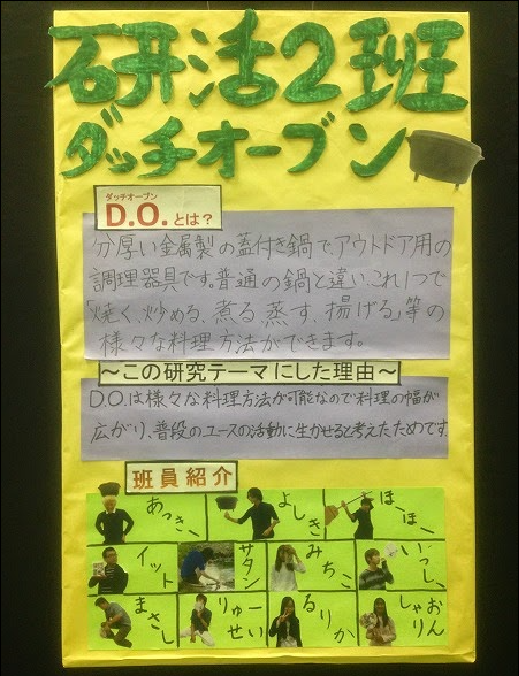 研活2班
ダッチオーブン
ダッチオーブン
D.O.とは?
分厚い金属製の蓋付き鍋で、アウトドア用の
調理器具です。普通の鍋と違い、これ1つで
「焼く、炒める、煮る、蒸す、揚げる」等の
様々な料理方法ができます。
～この研究テーマにした理由～
D.O.は様々な料理方法が可能なので料理の幅が
広がり、普段のユースの活動に生かせると考えたためです。
班員紹介
あっきー
よしき
イット
サタン
みちこ
いっしー
まさし
りゅーせい
るりか
おしゃりん